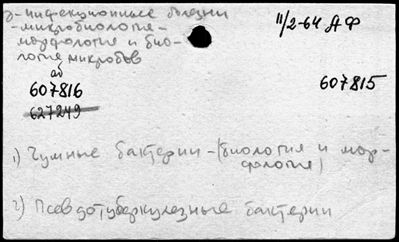 γ-инфекционные болезни
-микробиология-
морфология и био-
логия микробов
11/2-64 ДФ
аб
607816
627249
607815
1) Чумные бактерии - (биология и мор-
фология)
2) Псевдотуберкулезные бактерии